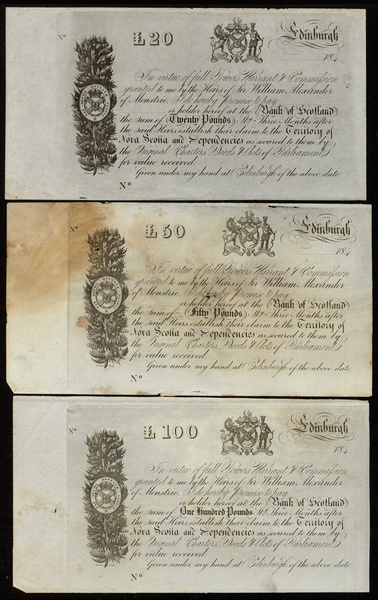 No
££20
Edinburgh
184
In virtue of full Powers Warrant & Commission
granted to me by the Heirs of Sir William Alexander
of Menstrie, I do hereby promise to pay
or holder hereof at the (Bank of Scotland)
the sum of (Twenty Pounds) Stg Three Months after
the said Heirs establish their claim to the Territory of
Nova Scotia and Dependencies as secured to them by
the Original Charters Deeds & Acts of Parliament
for value received
Given under my hand at Edinburgh of the above date
No
No
££50
Edinburgh
184
In virtue of full Powers Warrant & Commission
granted to me by the Heirs of Sir William Alexander
of Menstrie, I do hereby promise to pay
or holder hereof at the (Bank of Scotland)
the sum of (Fifty Pounds) Stg Three Months after
the said Heirs establish their claim to the Territory of
Nova Scotia and Dependencies as secured to them by
the Original Charters Deeds & Acts of Parliament
for value received
Given under my hand at Edinburgh of the above date
No
No
££100
Edinburgh
184
In virtue of full Powers Warrant & Commission
granted to me by the Heirs of Sir William Alexander
of Menstrie, I do hereby promise to pay
or holder hereof at the (Bank of Scotland)
the sum of One Hundred Pounds Stg Three Months after
the said Heirs establish their claim to the Territory of
Nova Scotia and Dependencies as secured to them by
the Original Charters Deeds & Acts of Parliament
for value received
Given under my hand at Edinburgh of the above date
No